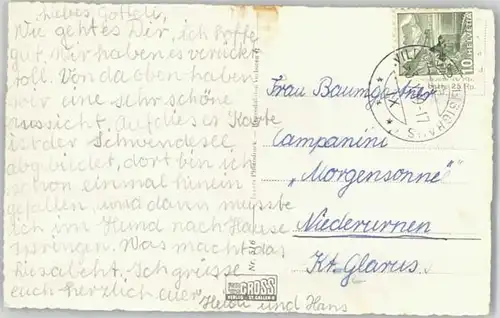 Liebes Gotteli,
Wie geht es Dir, ich hoffe
gut. Wir haben es wunder
voll. Von da oben haben
wir eine sehr schöne
Aussicht. Auf dieser Karte
ist der Schwendisee
abgebildet, dort bin ich
schon einmal hinein
gefallen, und dann musste
ich im Hemd nach Hause
springen. Was macht das
Lisabeth. Ich grüsse
euch herzlich euer
Heidi und Hans
Frau Baumgartner
Campanini
„Morgensonne"
Niederurnen
Kt. Glarus
HELVETIA
10
Nr. 516
GROSS
VERLAG ST. GALLEN